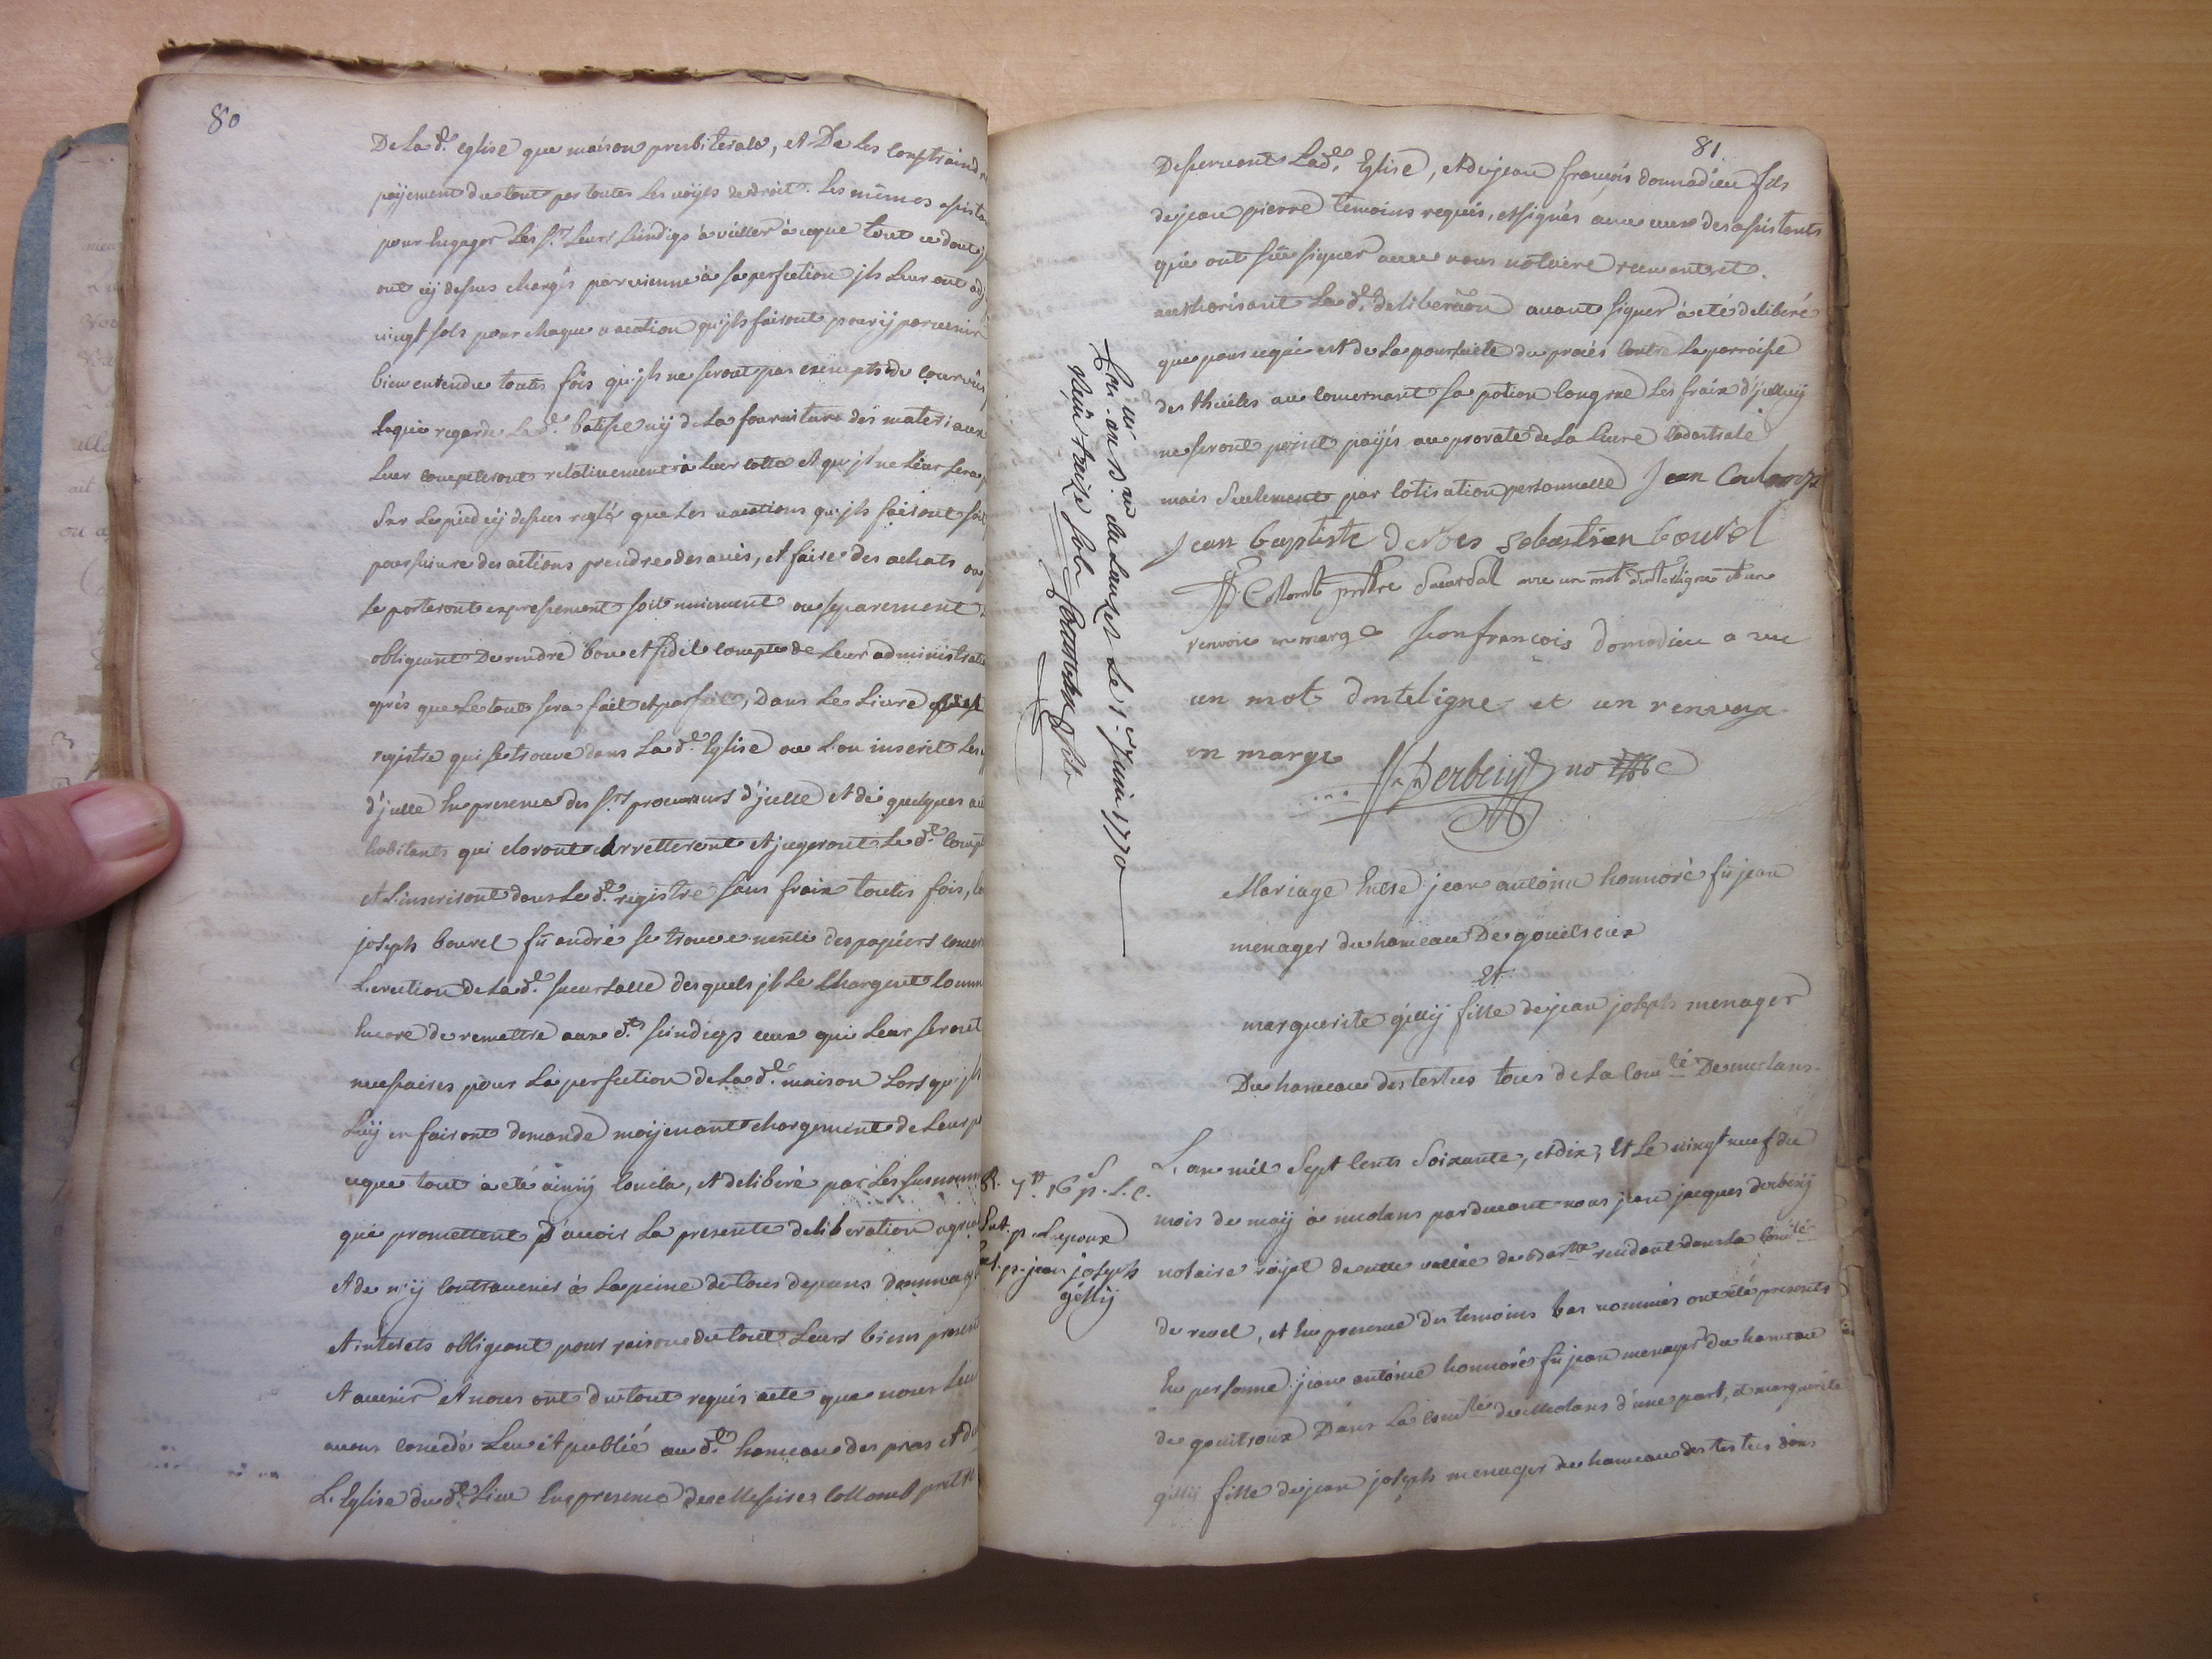 80
De la d.e eglise que maison presbiterale, et De les Constraind
payement du tout par toutes les voÿes de droit. Les mêmes assista
pour Engager Les s.rs Leurs sindigs à veiller à ceque tout ce dont j
ont cÿ dessus chargés parvienne à sa perfection jls Leur ont adj
vingt sols pour chaque vacation qu'jls fairont pour ÿ parvenir
bien entendu toutes fois qu'jls ne seront pas exempts du courvées
la d.e batisse nÿ de la fourniture des materiaux
Leur compteront relativement à Leur cotte et qu'jl ne Leur sera p
sur Le pied cÿ dessus reglé que Les vacations qu'jls fairont soit
poursuivre des actions prendre des avis, et faire des achats ou
se porteront expressement soit uniement ou separement
obligeant De rendre bon et fidel compte de Leur administrati
aprés que Le tout sera fait et parfait, Dans Le Livre
registre qui se trouve dans La d.e Eglise ou L'on inserit Les
d'jcelle En presence des s.rs procureurs d'jcelle et de quelques au
habitants qui cloront arretteront et jugeront Le d.t Compt
et L'inseriront dans Le d.t registre sans fraix toutes fois,
joseph bouvel fû andré se trouve nentis des papiers concer
L'erection de La d.e sucursalle desquels jls Le Chargent Comm
Encore de remettre aux d.ts sindigs ceux qui Leur seront
necessaires pour La perfection de La d.e maison Lors qu'jls
Luÿ en fairont demande moÿenant chargement de Leur p
ceque tout à été ainsÿ Concla, et deliberé par Les susnomm
qui promettent d'avoir La presente deliberation agrea
et de n'ÿ Contrevenir à La peine de tous depens dommag
et interets obligeant pour raison du tout Leurs biens present
et avenir et nous ont du tout requis acte que nous Leur
avons concedé Leu et publié au d.t hameau des pras et d
L'Eglise du d.t Lieu En presence de Messire collomb prêtre
81
Desservant La d.e Eglise, et de jean françois donnadieu fils
de jean pierre temoins requis, et signés avec ceux des assistants
qui ont sçu signer avec nous notaire recevant et.
authorisant La d.e deliberâon avant signer à été deliberé
que pour cequi est de La poursuite du procés Contre La parroisse
des thuiles au Concernant sa potion Congrue Les fraix d'jcelluÿ
ne seront point payés au prorata de La Livre Cadastrale
mais seulement par Cotisation personnelle Jean
Jean baptiste Sebastien bouvel
Collomb prêtre Sucursal avec un mot d'interligne et un
renvoie en marge Jeanfrancois Donadieu a vec
un mot dinteligne et un renvoy
en marge
Derbeziÿ no.re
Con.lé au B.au du Lauzet Le 1.er Juin 1770
Reçu treize sols
Mariage Entre jean antoine honnoré fû jean
menager du hameau De
Et
marguerite gillÿ fille de jean joseph menager
Du hameau des testus tous de La Com.té De meolans
L'an mil Sept Cents Soixante, et dix, Et Le vingt neuf du
mois de maÿ à meolans pardevant nous jean jacques derbeziÿ
notaire roÿal de cette vallée de Bar.tte residant dans La Com.té
de revel, et En presence des temoins bas nommés ont été presents
En personne jean antoine honnoré fû jean menager du hameau
de Dans La Com.té de Meolans d'une part, et marguerite
gillÿ fille de jean joseph menager du hameau des testus dans
R. 7.tt 16 s. p. L. C.
Ext. p. Lepoux
Ext. p. jean joseph
gillÿ